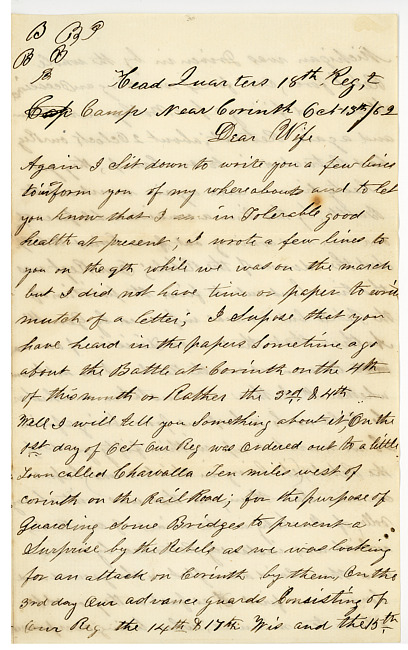 B B P
B B
B
Head Quarters 18th Reg,t
Camp Near Corinth Oct 13th/62
Dear Wife
Again I Sit down to write you a few lines
to inform you of my whereabouts and to let
you know that I am in Tolerable good
health at present; I wrote a few lines to
you on the 9th while we was on the march
but I did not have time or paper to write
mutch of a letter; I Supose that you
have heard in the papers Sometime ago
about the Battle at Corinth on the 4th
of this month or Rather the 3rd & 4th
Well I will tell you Something about it On the
1st day of Oct Our Reg was Ordered out to a little
Town called Chawalla Ten miles west of
Corinth on the Rail Road; for the purpose of
Guarding Some Bridges to prevent a
Surprise by the Rebels as we was looking
for an attack on Corinth by them, On the
3rd day Our advance guards Consisting of
Our Reg the 14th & 17th Wis and the 15th